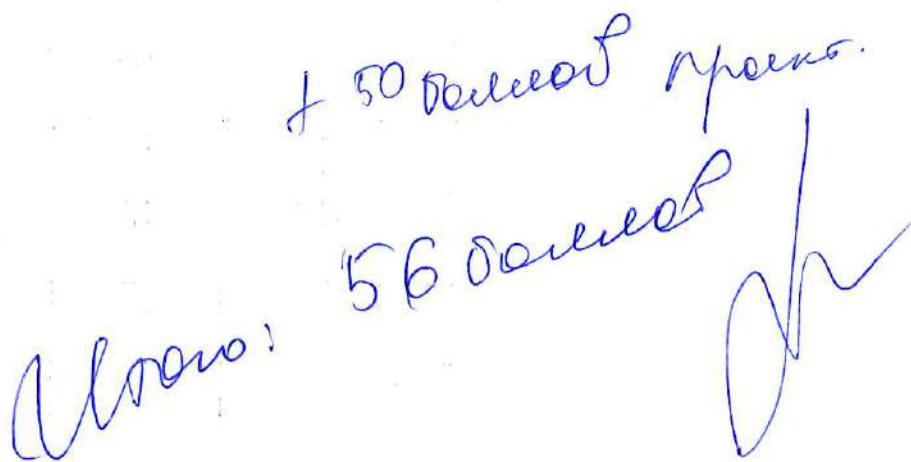 + 50 баллов проект.
Итого: 56 баллов